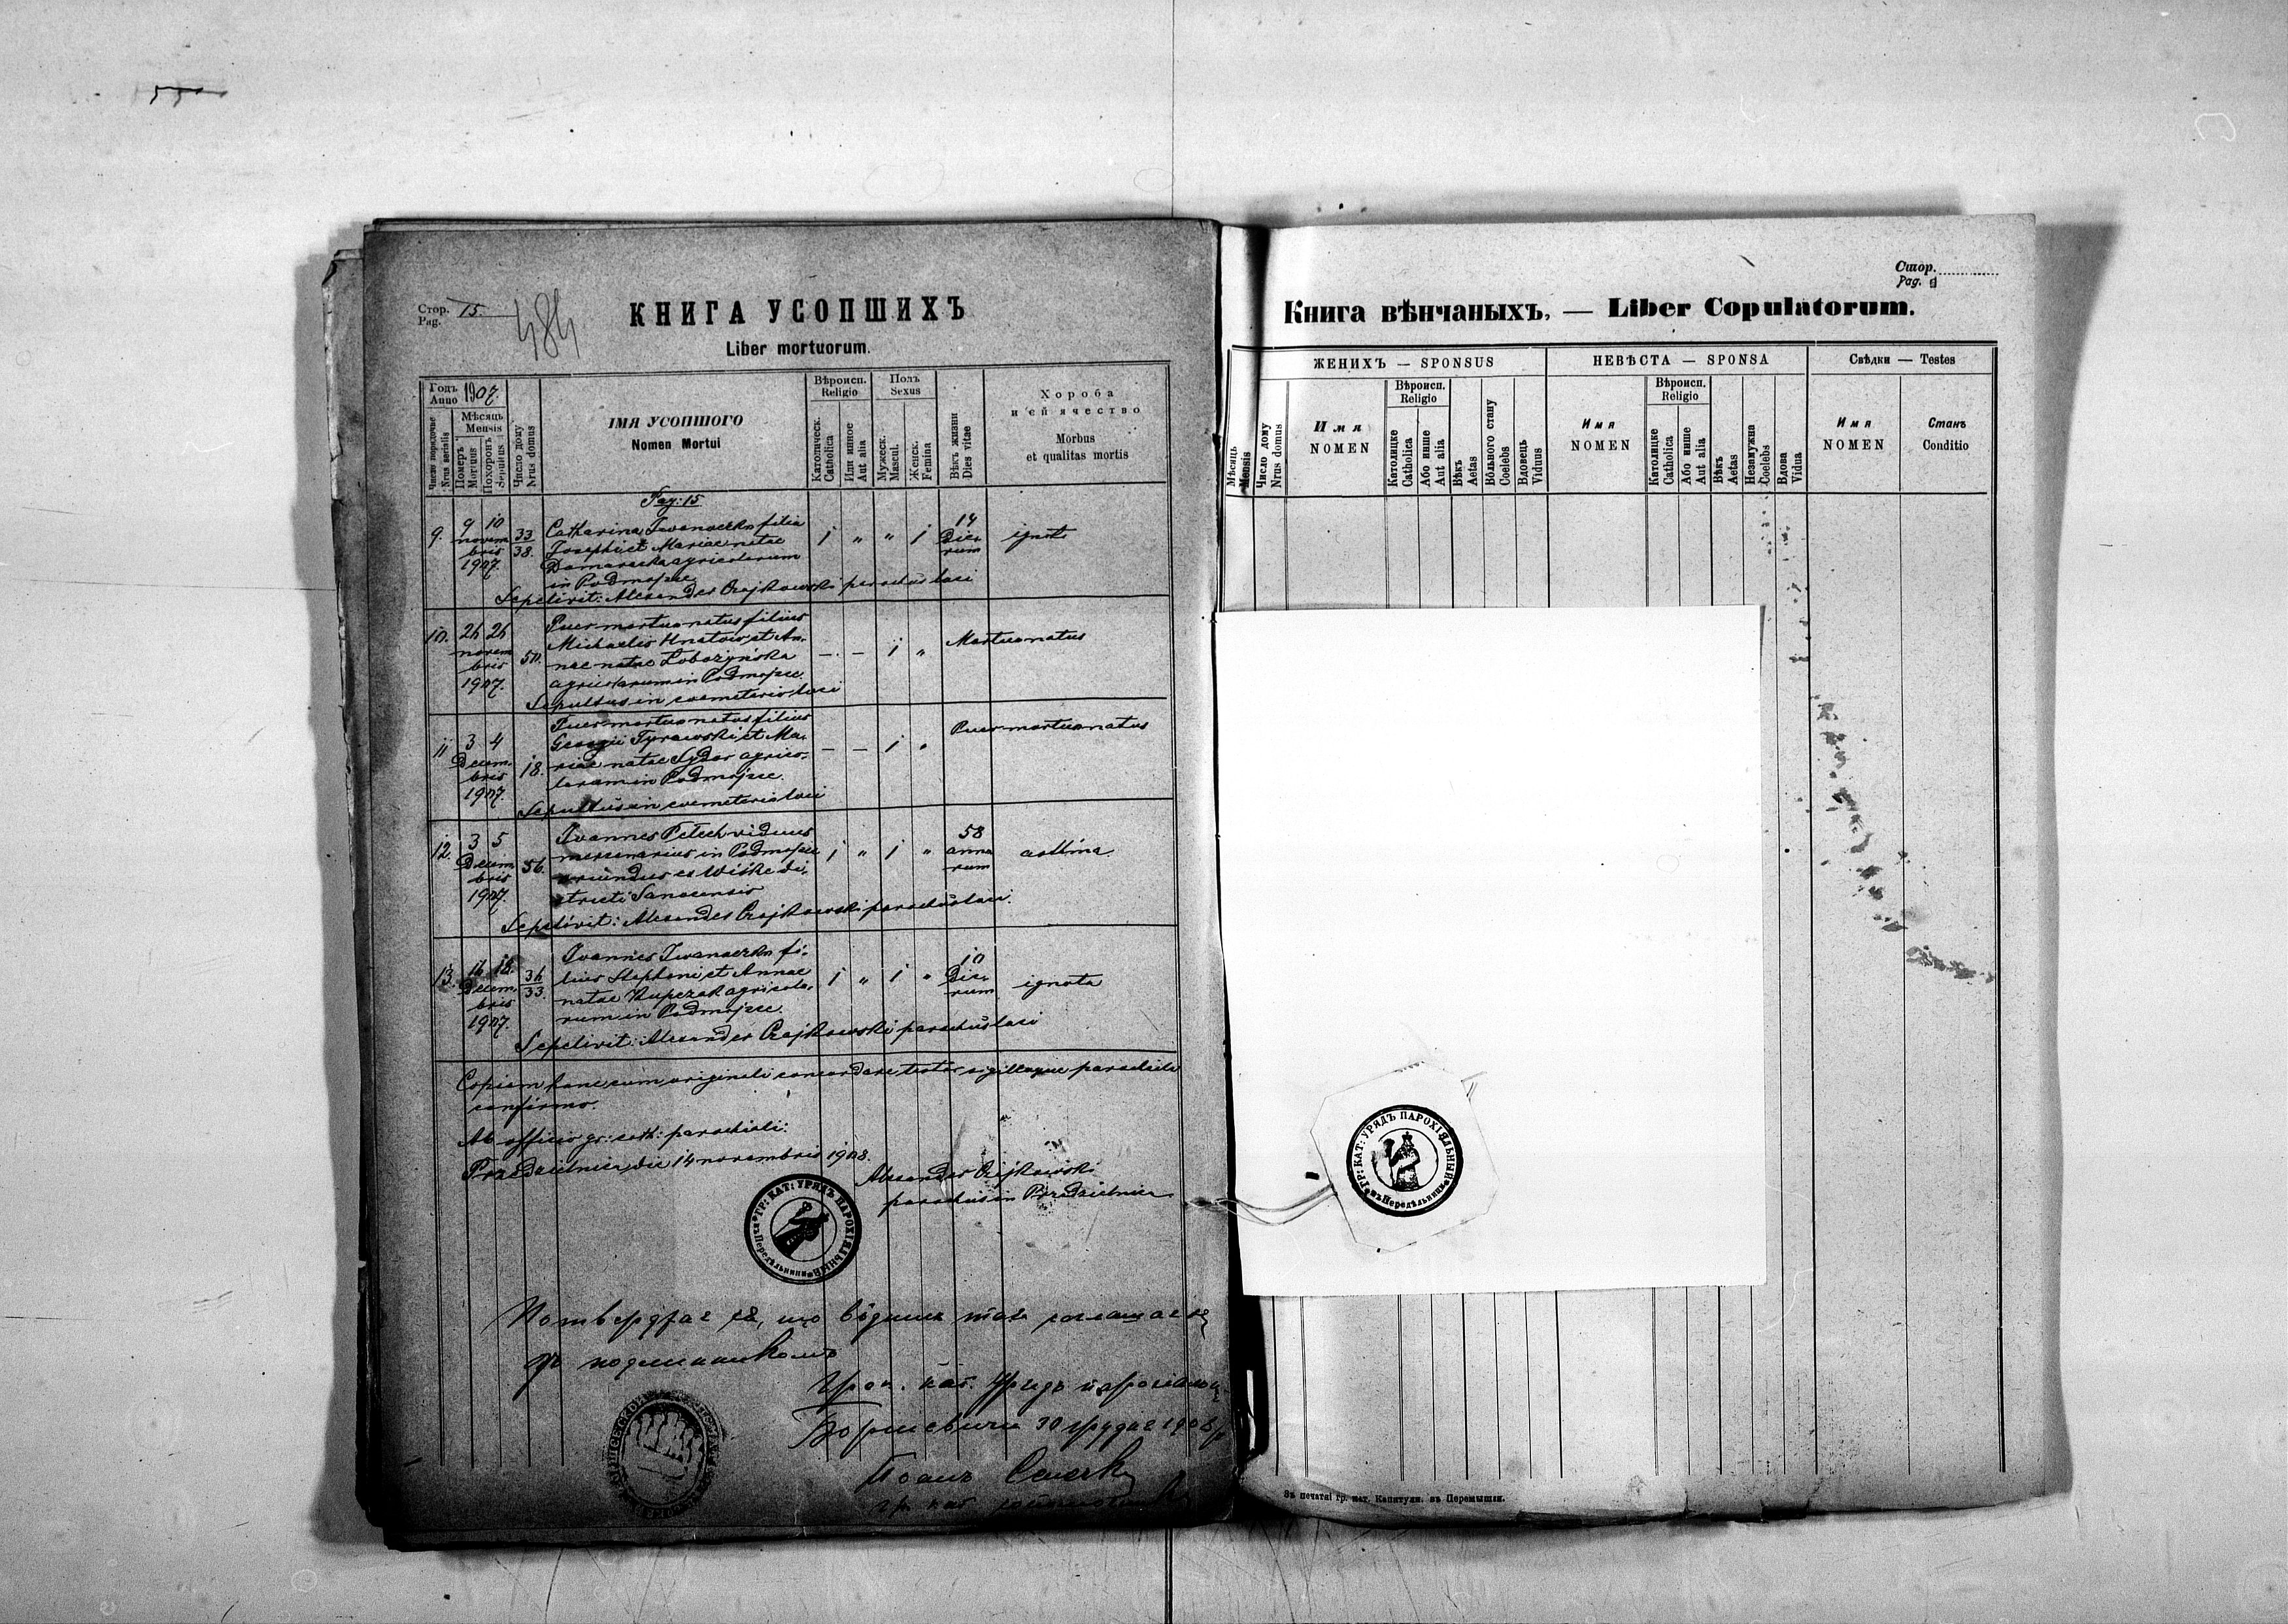 Стор. 15.
Pag.
484
КНИГА УСОПШИХЪ
Liber mortuorum.
Годъ
Anno 1907.
Мѣсяць
Mensis
Число порядочне
Nrus serialis
Померъ
Mortuus
Похоронъ
Sepultus
Число дому
Nrus domus
ІМЯ УСОПШОГО
Nomen Mortui
Вѣроисп.
Religio
Католическ.
Catholica
Или инное
Aut alia
Полъ
Sexus
Мужеск.
Mascul.
Женск.
Femina
Вѣкъ жизни
Dies vitae
Хороба
и єй ячество
Morbus
et qualitas mortis
Pag: 15
9. 9 10 novembris 1907. 33/38. Catharina Iwanaczko filia 1 „ „ 1 14 Dierum ignota
Josephi et Mariae natae
agricolarum
in Podmojsce
Sepelivit: Alexander Czajkowski parochus loci
10. 26 26 novembris 1907. 50. Puer mortuo natus filius — — 1 „ Mortuo natus
Michaelis Hnatow et An-
nae natae Łobozyńska
agricolarum in Podmojsce.
Sepultus in coemeterio loci
11 3 4 Decembris 1907. 18. Puer mortuo natus filius — — 1 „ Puer mortuo natus
Georgii Tyrawski et Ma-
riae natae Sydor agrico-
larum in Podmojsce.
Sepultus in coemeterio loci
12. 3 5 Decembris 1907. 56. Ioannes Petech viduus 1 „ 1 „ 58 annorum asthma.
mercenarius in Podmojsce
oriundus ex Wisłok di-
stricti Sanocensis
Sepelivit: Alexander Czajkowski parochus loci.
13. 16 18. Decembris 1907. 36/33. Ioannes Iwanaczko fi- 1 „ 1 „ 10 Dierum ignota
lius Stephani et Annae
natae Kupczak agricola-
rum in Podmojsce.
Sepelivit: Alexander Czajkowski parochus loci
Copiam hanc cum originali concordare testor sigilloque parochiali
confirmo.
Ab officio gr: cath: parochiali:
Przedzielnica, die 14 novembris 1908.
Alexander Czajkowski
parochus in Przedzielnica
ГР: КАТ: УРЯДЪ ПАРОХІЯЛЬНЫЙ въ Передѣльници
що вôдпись тая соглашаєся
Грек. кат. Урядъ парохіальный
30 грудня 1908
Іоанъ
гр. кат.
Стор.
Pag.
Книга вѣнчаныхъ, — Liber Copulatorum.
ЖЕНИХЪ — SPONSUS
НЕВѢСТА — SPONSA
Свѣдки — Testes
Мѣсяць
Mensis
Число дому
Nrus domus
Имя
NOMEN
Вѣроисп.
Religio
Католицке
Catholica
Або инше
Aut alia
Вѣкъ
Aetas
Вôльного стану
Coelebs
Вдовець
Viduus
Имя
NOMEN
Вѣроисп.
Religio
Католицке
Catholica
Або инше
Aut alia
Вѣкъ
Aetas
Незамужна
Coelebs
Вдова
Vidua
Имя
NOMEN
Станъ
Conditio
ГР: КАТ: УРЯДЪ ПАРОХІЯЛЬНЫЙ въ Передѣльници
Зъ печатнѣ гр. кат. Капитулы. въ Перемышли.